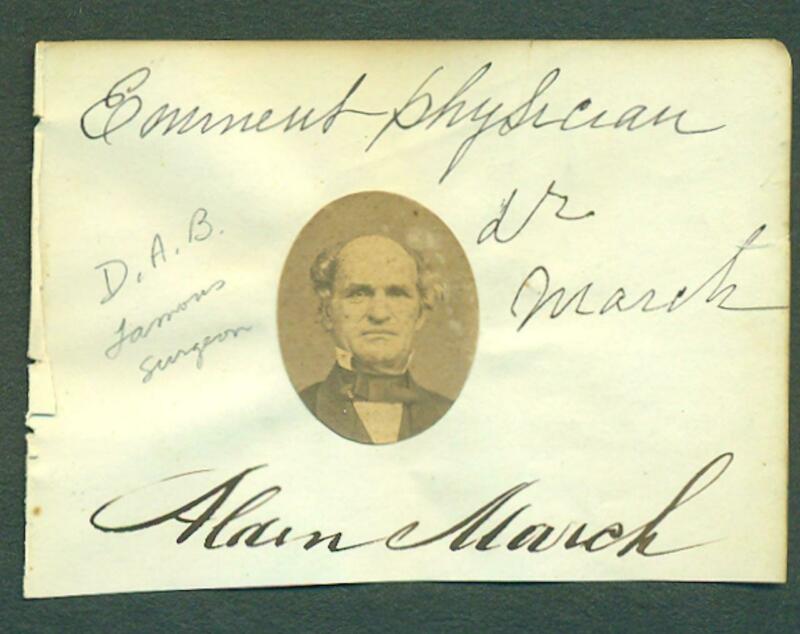 Eminent physician
dr
March
D.A.B.
famous
surgeon
Alden March